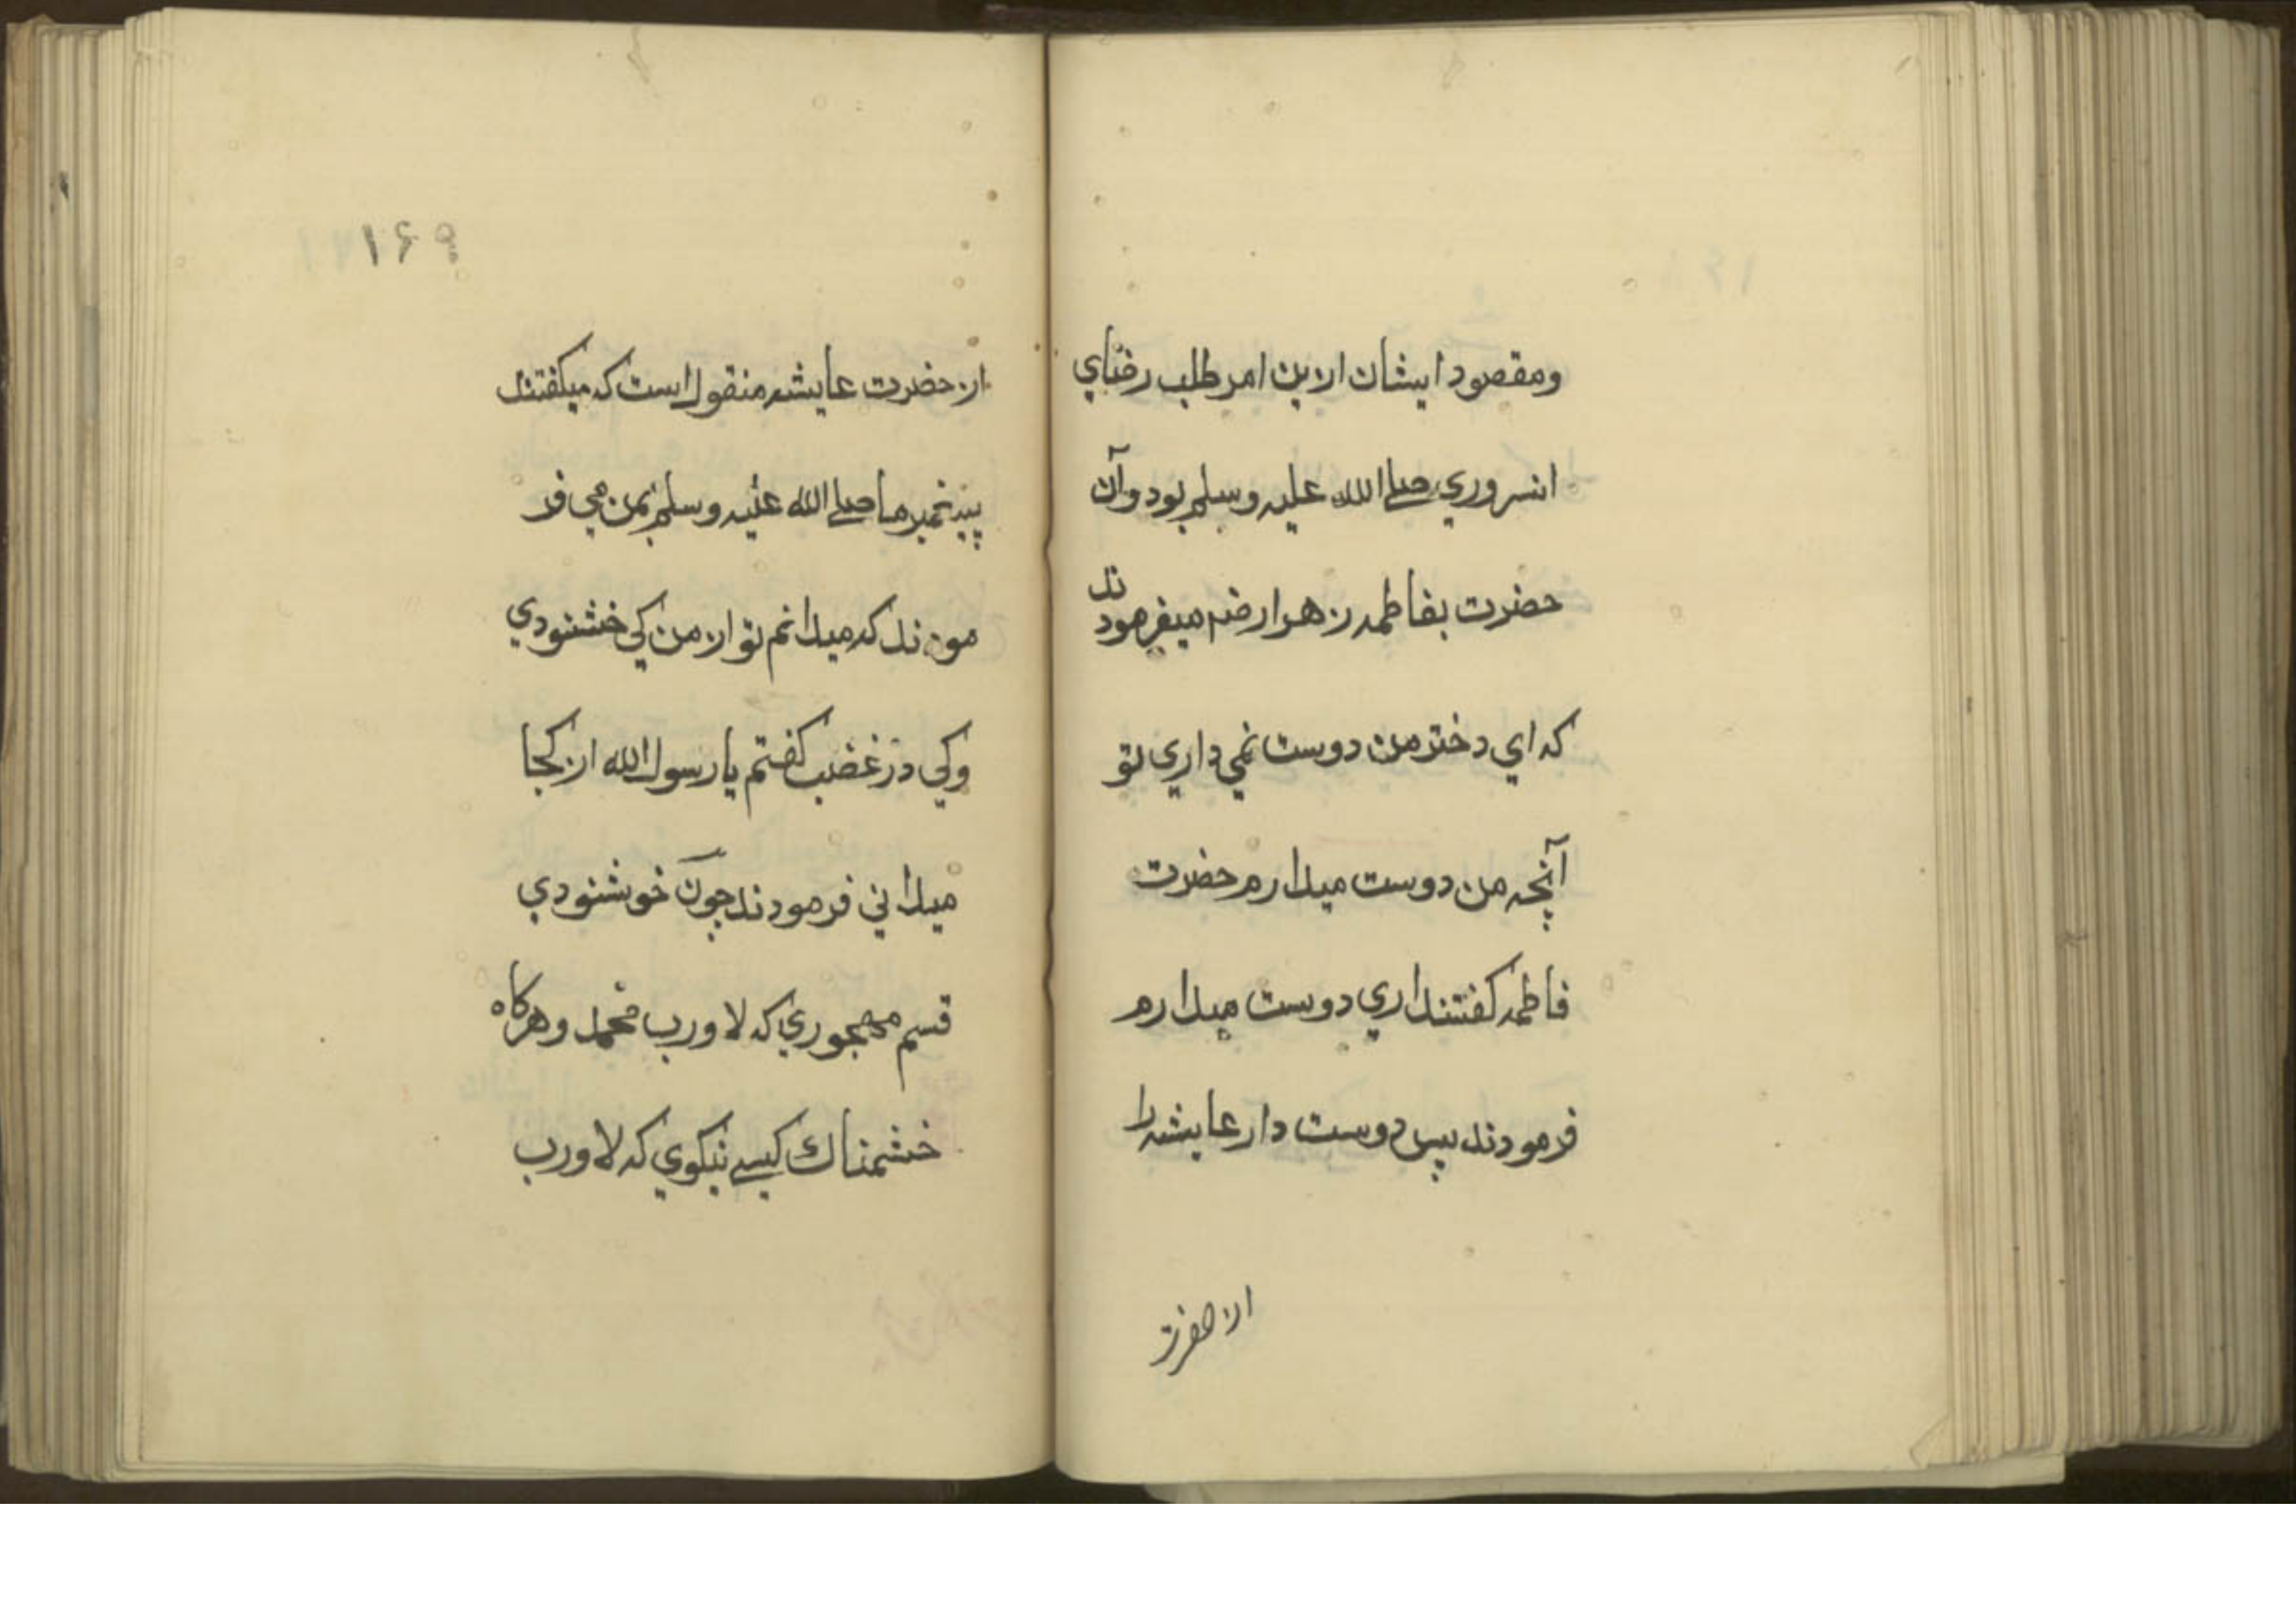 ومقصود ایشان ازین امر طلب رضاي
انسروري صلے الله علیه وسلم بود وآن
حضرت بفاطمه زهرا رضہ میفرمودند
که اي دختر من دوست نمي داري تو
آنچه من دوست میدارم حضرت
فاطمه کفتند اري دوست میدارم
فرمودند پس دوست دار عایشه را
از حضرت
۱۶۹
از حضرت عایشه منقول است که میکفتند
پیغمبر ما صلے الله علیه وسلم بمن مي فر
مودند که میدانم تو از من کي خشنودي
وکي در غضب کفتم یا رسول الله از کجا
میداني فرمودند چون خوشنودي
قسم میجوري که لا ورب محمد وهرکاه
خشمناك کیسے نیکوي که لا ورب